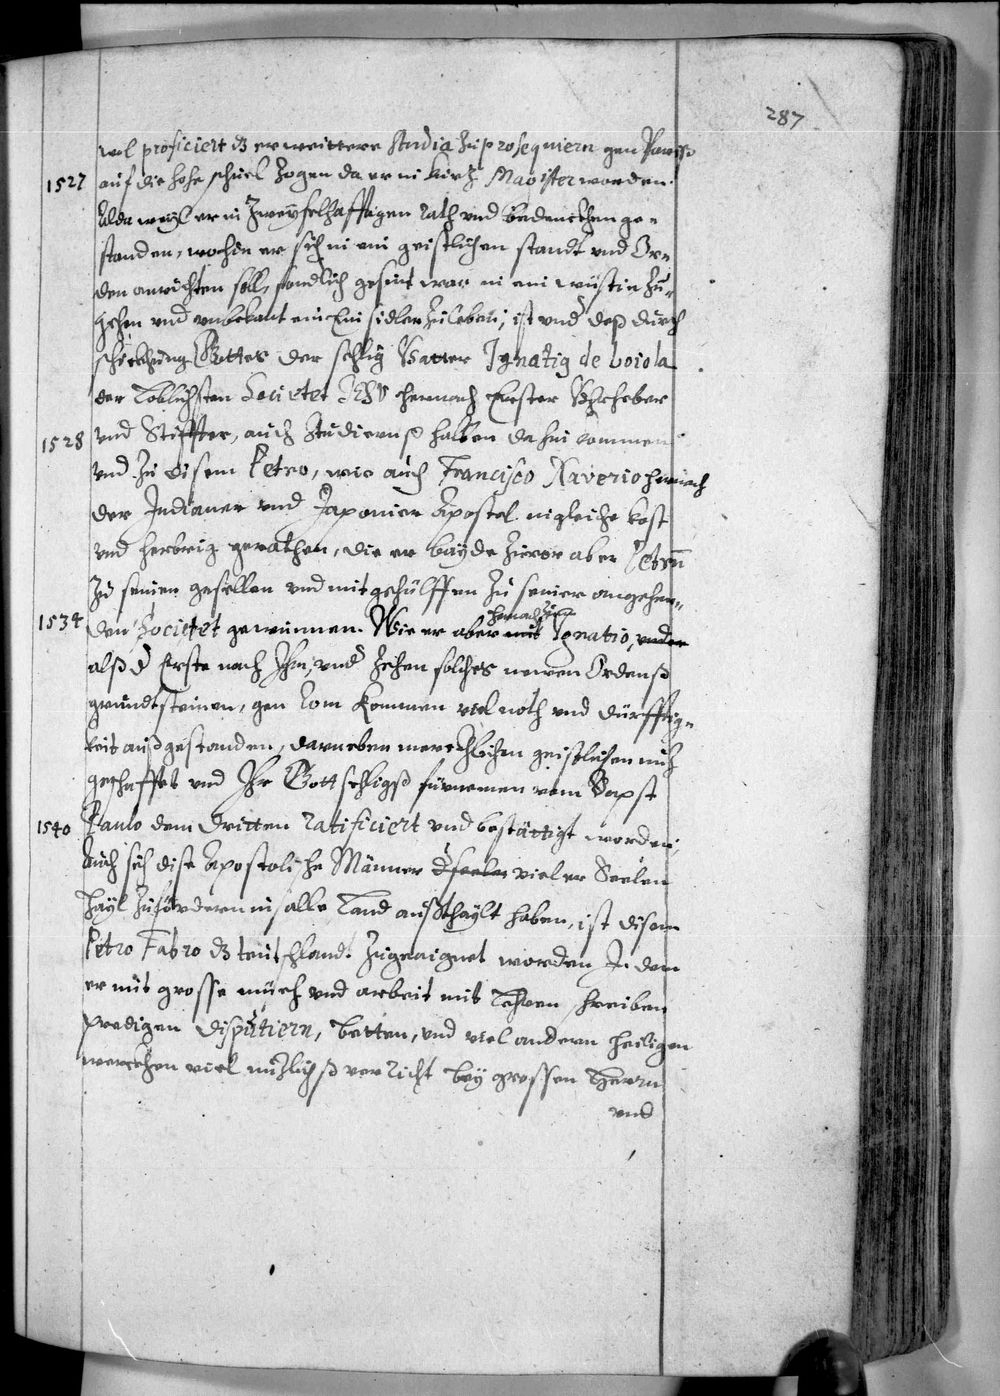 287
wol proficiert dz er weittere studia zu prosequiern gen Pariß
1527 auf die hohe schuel zogen da er in kurtz Magister worden.
Alda weyl er in zweyfelhafftigen rath und bedenckhen ge-
standen, wohin er sich in ein geistlichen standt und Or-
den anrichten soll, endlich gesint war in ein wüstin zu-
gehen und unbekant ein Einsidler zu leben, ist under deß durch
schickhung Gottes der selig Vatter Ignatig de Loiola
der Loblichsten Societet JESV hernach Erster Vrheber
1528 und Stiffter, auch Studierens halben dahin kommen
und zu disem Petro, wie auch Francisco Xaverio hernach
der Indianer und Japonier Apostel in gleiche kost
und herberig gerathen, die er bayde zuvor aber Petru
zu seinen gesellen und mitgehülffen zu seiner angehen-
1534 den Societet gewunnen. Wie er aber mit hernach Ignatio, under
alß d Erste nach Ihm, und zehen solches newen Ordenß
grundtsteinen, gen Rom kommen viel noth und dürfftig-
keit außgestanden, darneben merckhlichen geistlichen nutz
geschaffet und Ihr Gottseligß fürnemen vom Papst
1540 Paulo dem Dritten ratificiert und bestättigt worden,
Auch sich dise Apostolische Männer viler Seelen
Hayl zu fürdern in alle Land außthaylt haben, ist disem
Petro Fabro dz teutschlandt zugeaignet worden In dem
er mit grosse müeh und arbeit mit Lehren, schreiben
predigen disputiern, betten, und viel andern heiligen
werckhen viel nutzlichß verricht bey grossen Herrn
und